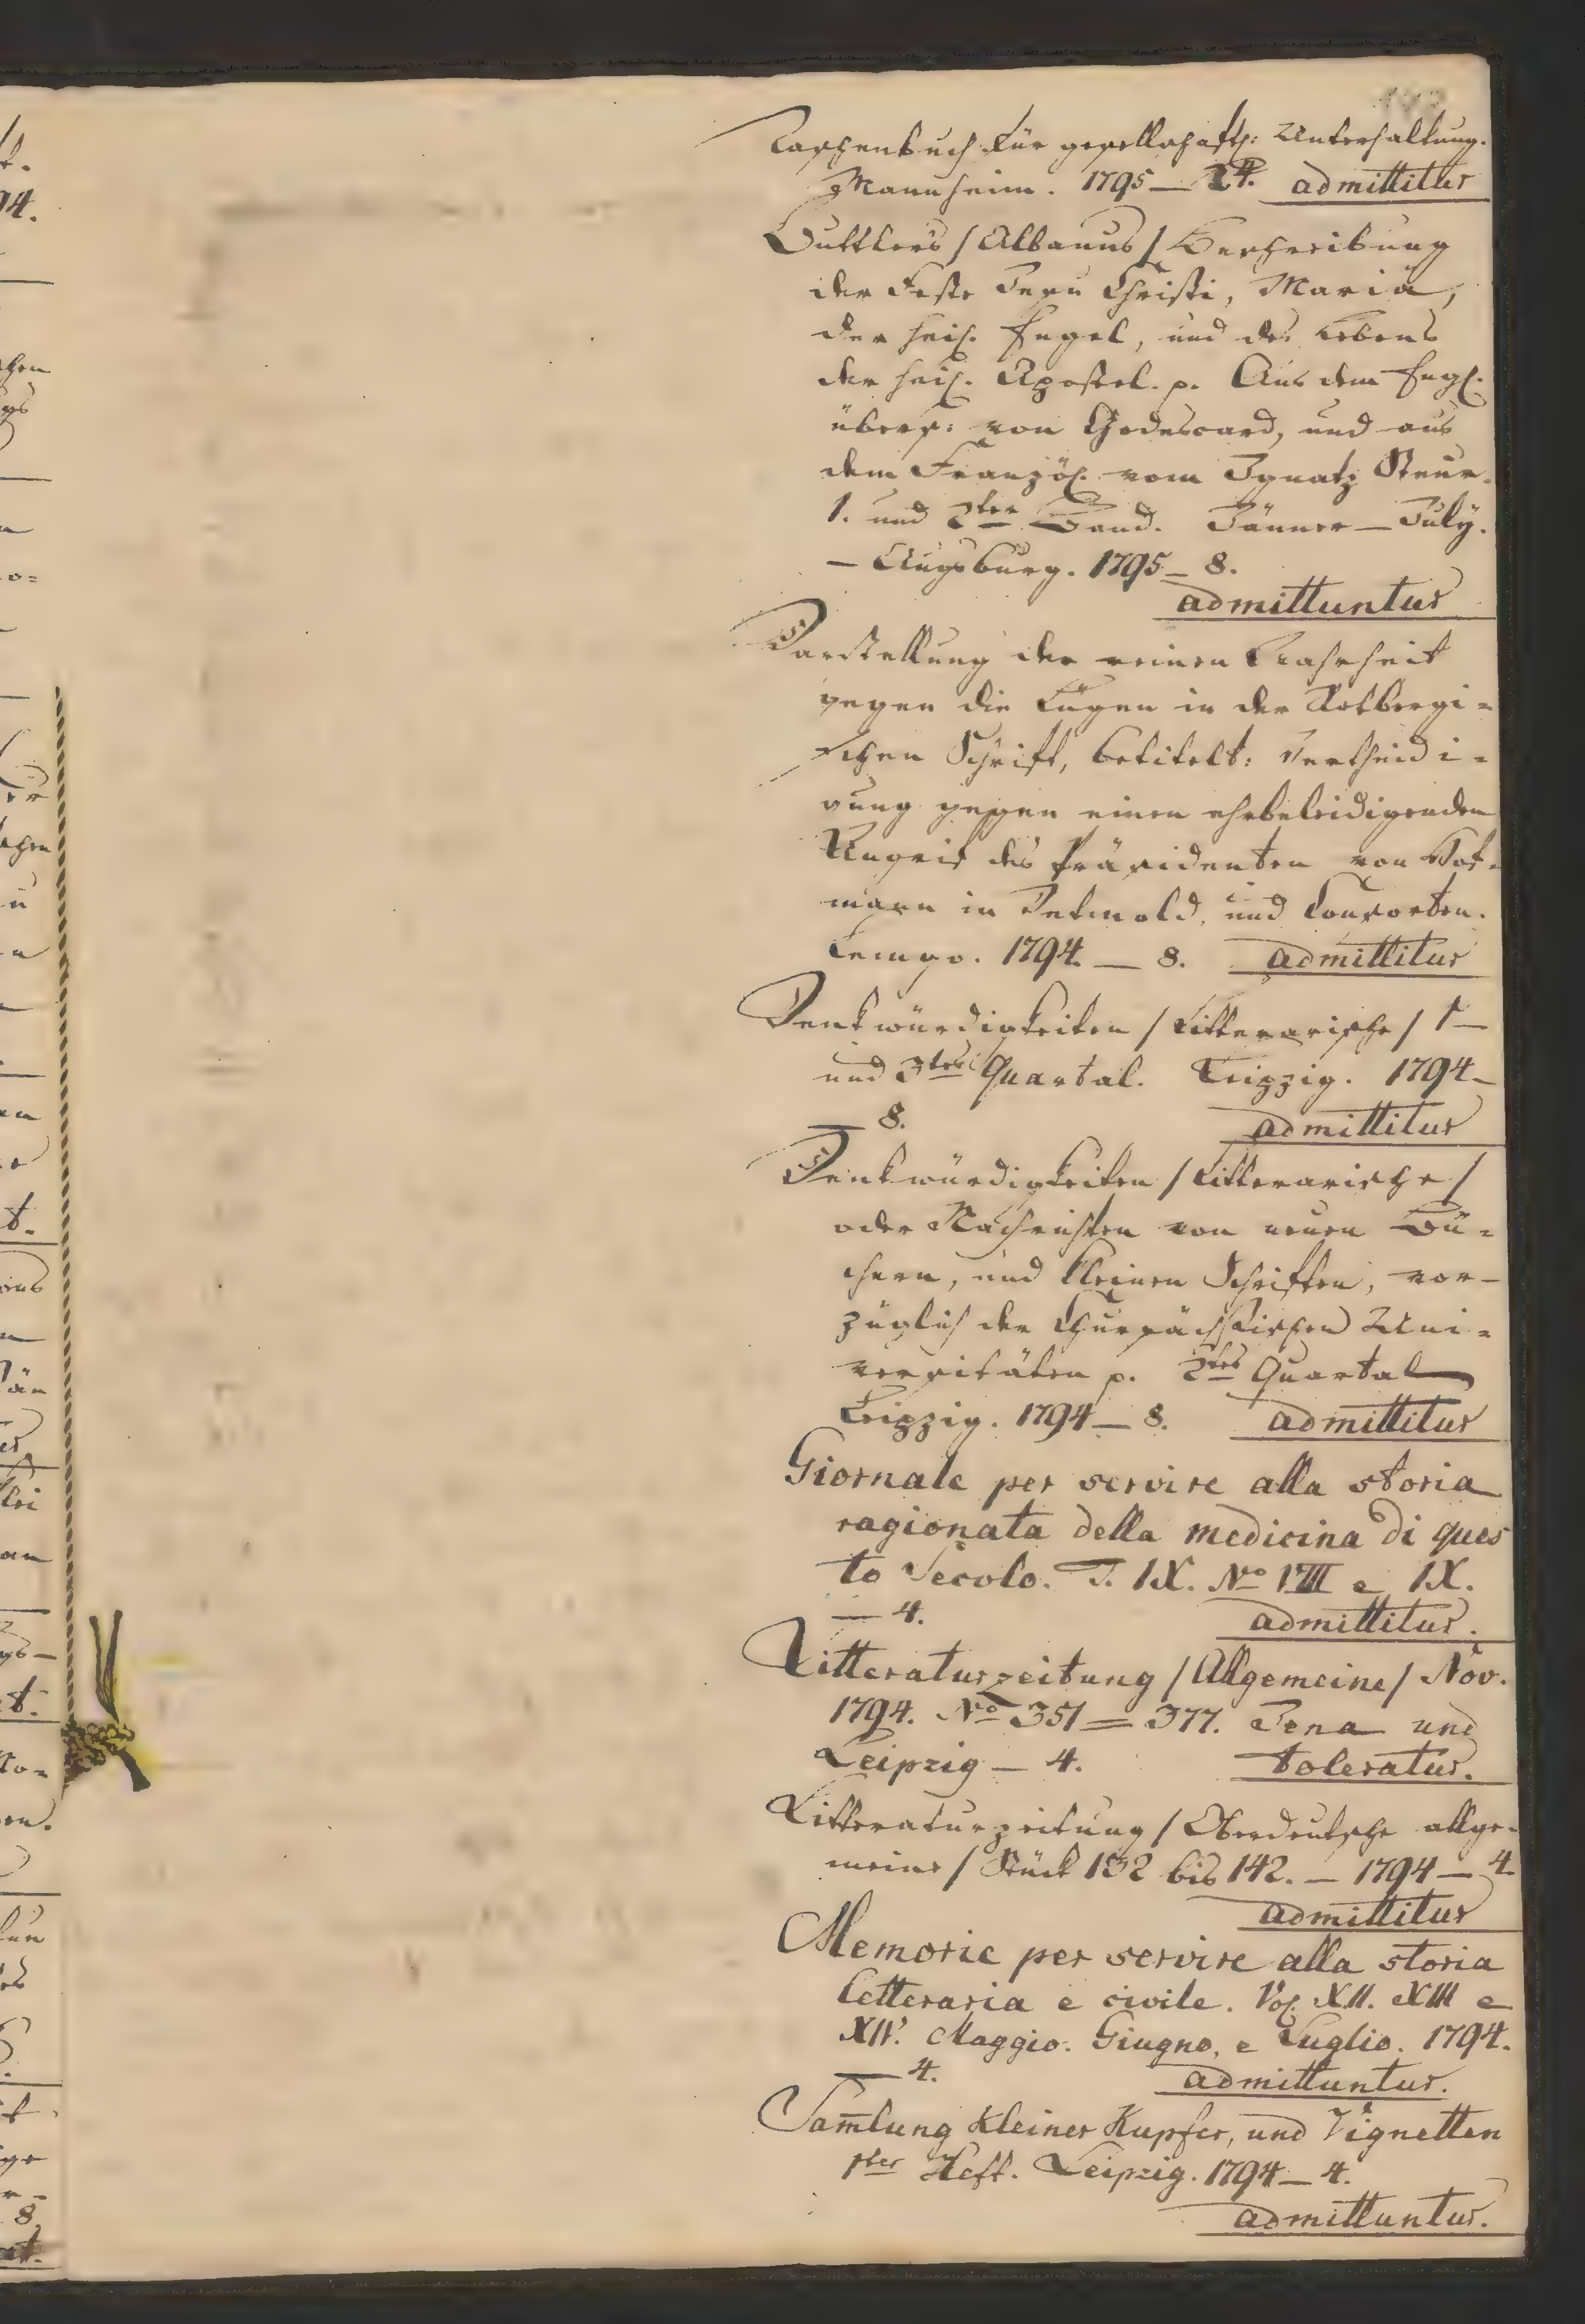 Taschenbuch für gesellschaftl: Unterhaltung.
Mannheim. 1795 — 24. admittitur
Buttlers /Albanus/ Beschreibung
der Feste Jesu Christi, Mariä,
der heil. Engel, und des Lebens
der heil. Apostel. p. Aus dem Engl.
übers: von Godescard, und aus
dem Französ. vom Ignatz Steur.
1. und 2ter Band. Jänner — July.
— Augsburg. 1795 — 8.
admittuntur
Darstellung der reinen Wahrheit
gegen die Lügen in der Rotbergi=
schen Schrift, betitelt: Vertheidi=
gung gegen einen ehrbeleidigenden
Angrif des Präsidenten von Hof=
mann in Detmold, und Consorten.
Lemgo. 1794. — 8. admittitur
Denkwürdigkeiten /Litterarische/ 1 —
und 3tes Quartal. Leipzig. 1794 —
— 8. admittitur
Denkwürdigkeiten /Litterarische/
oder Nachrichten von neuen Bü=
chern, und kleinen Schriften, vor=
züglich der Chursächsischen Uni=
versitäten p. 2tes Quartal
Leipzig. 1794 — 8. admittitur
Giornale per servire alla storia
ragionata della medicina di ques
to Secolo. T. IX. No VIII e IX.
— 4. admittitur.
Litteraturzeitung /Allgemeine/ Nov.
1794. No 351 = 377. Jena und
Leipzig — 4. toleratur.
Litteraturzeitung /Oberdeutsche allge=
meine/ Stück 132 bis 142. — 1794 — 4.
admittitur
Memorie per servire alla storia
letteraria e civile. Vol. XII. XIII e
XIV. Maggio. Giugno, e Luglio. 1794.
— 4. admittuntur.
Sam̅lung kleiner Kupfer, und Vignetten
1ter Heft. Leipzig. 1794 — 4.
admittuntur.